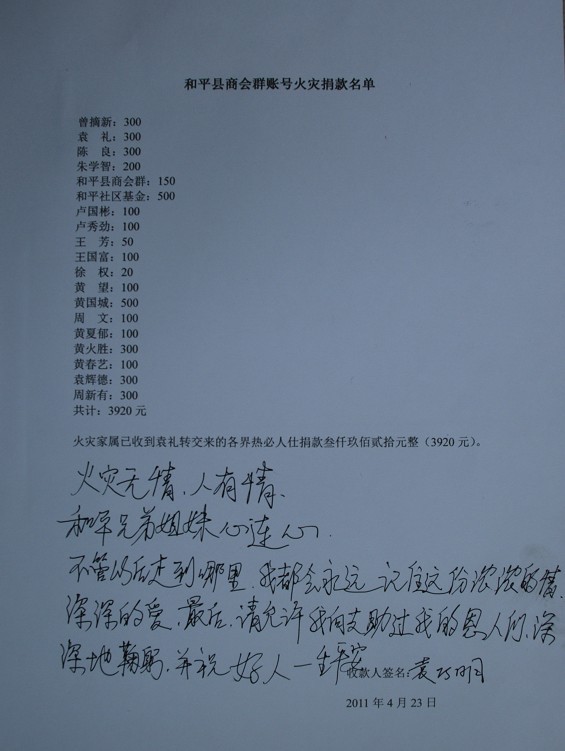 和平县商会群账号火灾捐款名单
曾摘新：300
袁　礼：300
陈　良：300
朱学智：200
和平县商会群：150
和平社区基金：500
卢国彬：100
卢秀劲：100
王　芳：50
王国富：100
徐　权：20
黄　望：100
黄国城：500
周　文：100
黄夏郁：100
黄火胜：300
黄春艺：100
袁辉德：300
周新有：300
共计：3920 元
火灾家属已收到袁礼转交来的各界热必人仕捐款叁仟玖佰贰拾元整（3920 元）。
火灾无情、人有情、
和平兄弟姐妹心连心．
不管以后走到哪里，我都会永远记住这份浓浓的情．
深深的爱．最后，请允许我向支助过我的恩人们，深
深地鞠躬．并祝好人一生平安
收款人签名：袁巧明
2011 年 4 月 23 日